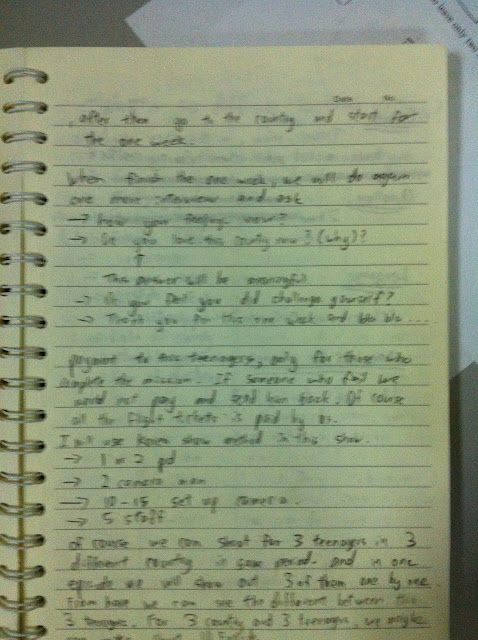 only two
Date No.
, after then go to the country and start for
the one week.
When finish the one week, we will do again
one more interview and ask
→ How your feeling now?
→ Do you love this country now? (why)?
↑
This answer will be meaningful
→ Do you feel you did challenge yourself?
→ Thank you for this one week and bla bla ...
payment to this teenagers, only for those who
complete the mission. If someone who fail we
would not pay and send him back. Of course
all the flight tickets is paid by us.
I will use Korea show method in this show.
→ 1 or 2 pd
→ 2 camera man
→ 10-15 set up camera.
→ 5 staff.
Of course we can shoot for 3 teenagers in 3
different country in same period. and in one
episode we will show out 3 of them one by one.
From here we can see the different between this
3 teenagers. For 3 country and 3 teenagers, we maybe